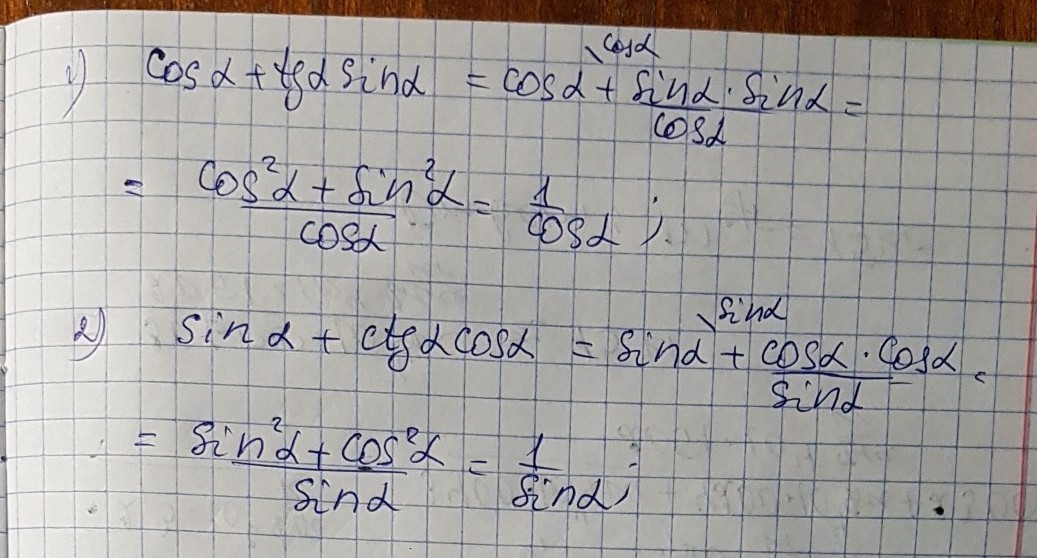 1) cos α + tg α sin α = cos α\cosα + sin α · sin α / cos α =
= cos²α + sin²α / cos α = 1 / cos α ;
2) sin α + ctg α cos α = sin α\sinα + cos α · cos α / sin α =
= sin²α + cos²α / sin α = 1 / sin α ;